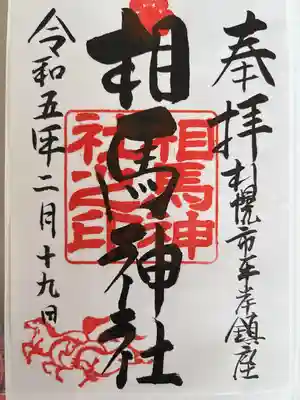 奉拝
札幌市平岸鎮座
相馬神社
相馬神社之印
令和五年二月十九日